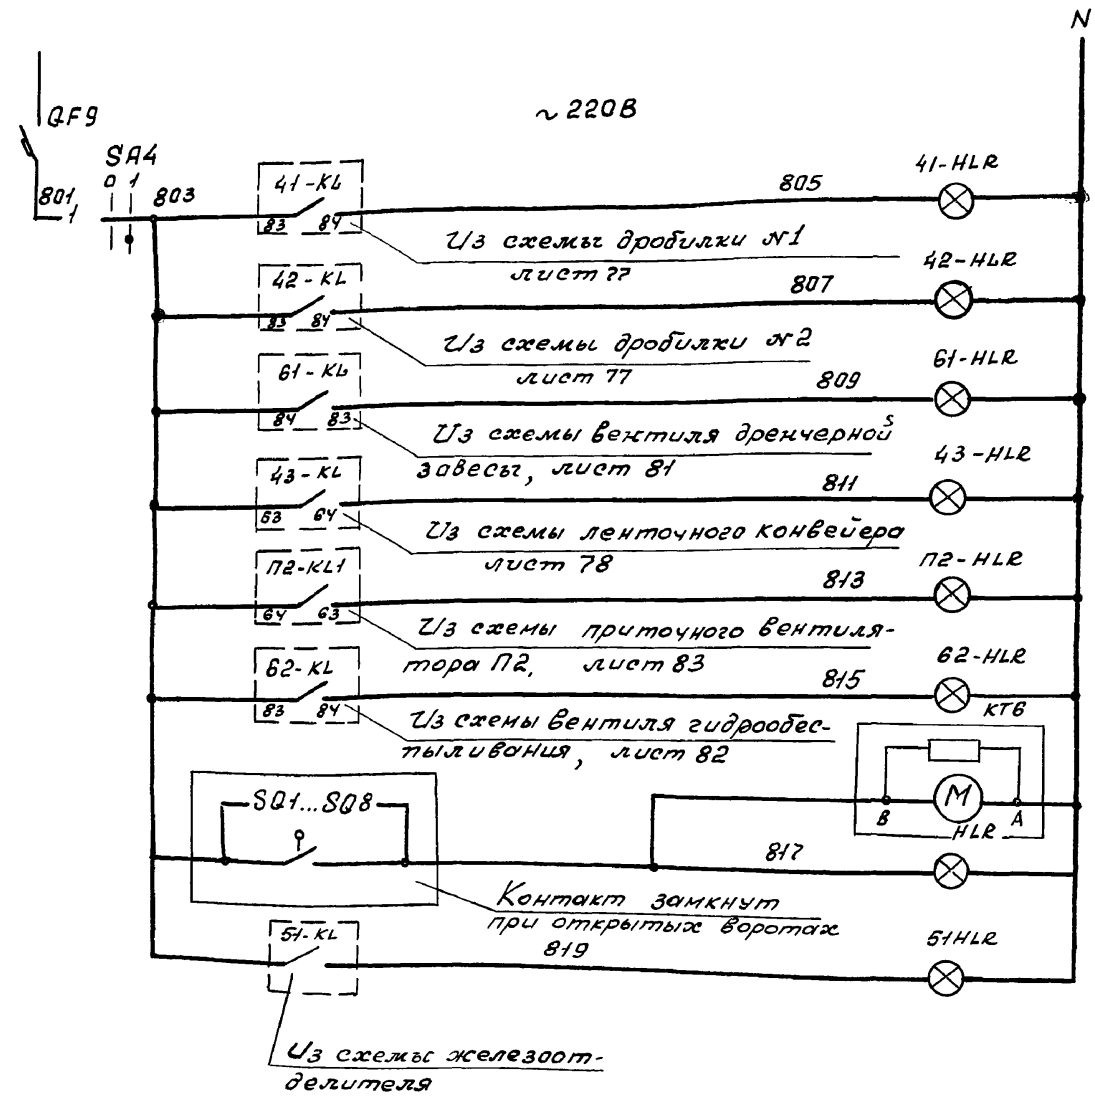 N
QF9
~220В
SA4
0 1
801
1
803
41-KL
83 84
805
41-HLR
Из схемы дробилки N1
лист 77
42-KL
83 84
807
42-HLR
Из схемы дробилки N2
лист 77
61-KL
84 83
809
61-HLR
Из схемы вентиля дренчерной
завесы, лист 81
43-KL
63 64
811
43-HLR
Из схемы ленточного конвейера
лист 78
П2-KL1
64 63
813
П2-HLR
Из схемы приточного вентиля-
тора П2, лист 83
62-KL
83 84
815
62-HLR
Из схемы вентиля гидрообес-
пыливания, лист 82
КТ6
M
B A
SQ1...SQ8
817
HLR
Контакт замкнут
при открытых воротах
51-KL
819
51HLR
Из схемы железоот-
делителя